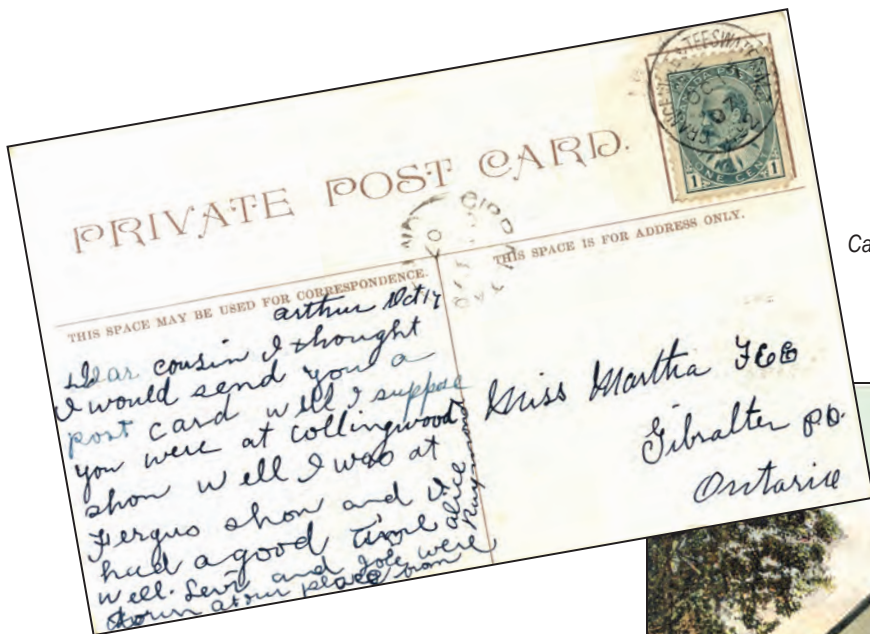 PRIVATE POST CARD.
ONE CENT
1 1
OCT
07
THIS SPACE MAY BE USED FOR CORRESPONDENCE.
THIS SPACE IS FOR ADDRESS ONLY.
arthur Oct 17
Dear cousin I thought
I would send you a
post card well I suppose
you were at Collingwood
show well I was at
Fergus show and I
had a good time
well. Levi and Joe were
down at our place from
alice
Miss Martha Fee
Gibralter PO.
Ontario
Ca